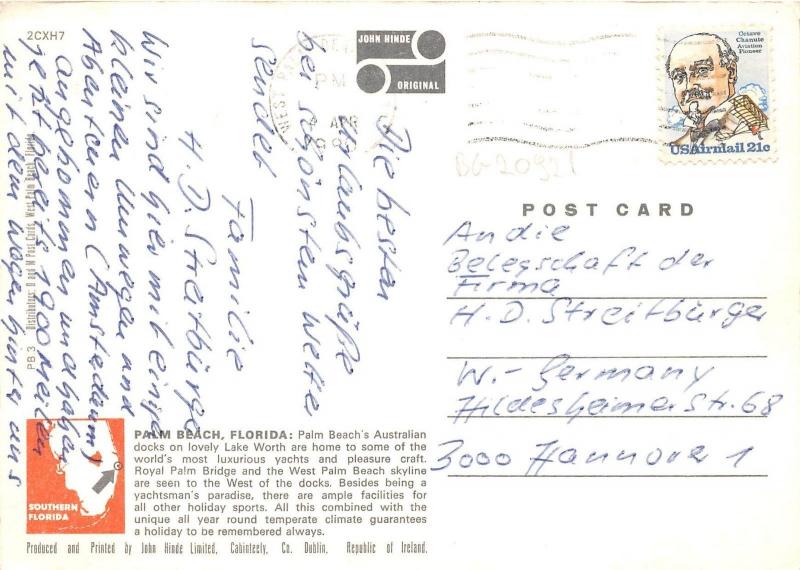 2CXH7
JOHN HINDE
ORIGINAL
Octave
Chanute
Aviation
Pioneer
USAirmail 21c
WEST PALM
PM
APR
BG-20921
Die besten
Urlaubsgrüße
bei schönstem Wetter
sendet
Familie
H. D. Streitbürger
Wir sind hier mit einigen
kleinen Umwegen und
Abenteuern (Amsterdam)
angekommen und haben
jetzt bereits 1900 Meilen
mit dem Wagen hinter uns
POST CARD
An die
Belegschaft der
Firma
H. D. Streitbürger
W.- Germany
Hildesheimer Str. 68
3000 Hannover 1
PB 3 Distributors: D and M Post Cards, West Palm Beach, Florida
SOUTHERN
FLORIDA
PALM BEACH, FLORIDA: Palm Beach's Australian
docks on lovely Lake Worth are home to some of the
world's most luxurious yachts and pleasure craft.
Royal Palm Bridge and the West Palm Beach skyline
are seen to the West of the docks. Besides being a
yachtsman's paradise, there are ample facilities for
all other holiday sports. All this combined with the
unique all year round temperate climate guarantees
a holiday to be remembered always.
Produced and Printed by John Hinde Limited, Cabinteely, Co. Dublin, Republic of Ireland.